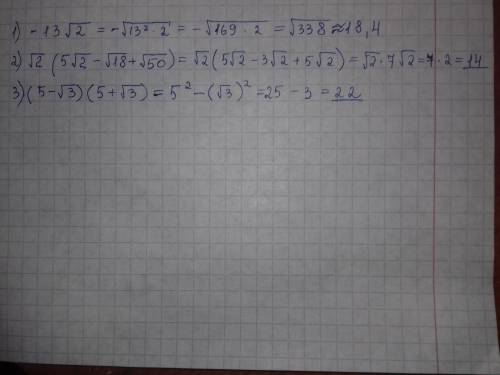 1) - 13√2 = -√(13² · 2) = -√(169 · 2) = √338 ≈ 18,4
2) √2 (5√2 - √18 + √50) = √2 (5√2 - 3√2 + 5√2) = √2 · 7√2 = 7 · 2 = 14
3) (5 - √3) (5 + √3) = 5² - (√3)² = 25 - 3 = 22